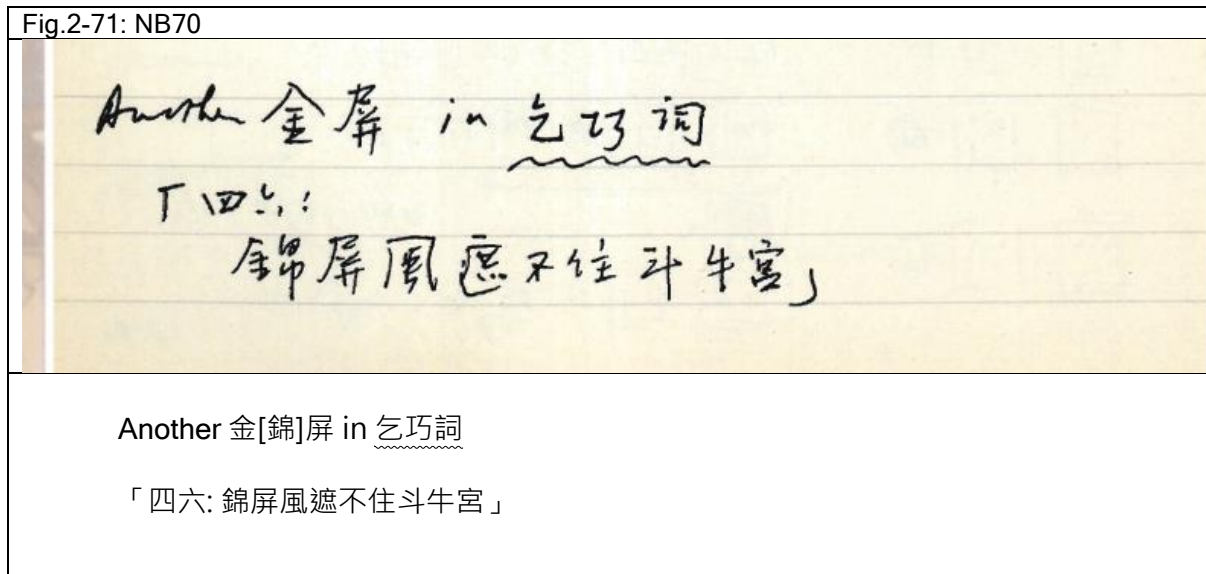 Fig.2-71: NB70
Another 金屏 in 乞巧词
「四六:
錦屏風遮不住斗牛宮」
Another 金[錦]屏 in 乞巧詞
「四六: 錦屏風遮不住斗牛宮」